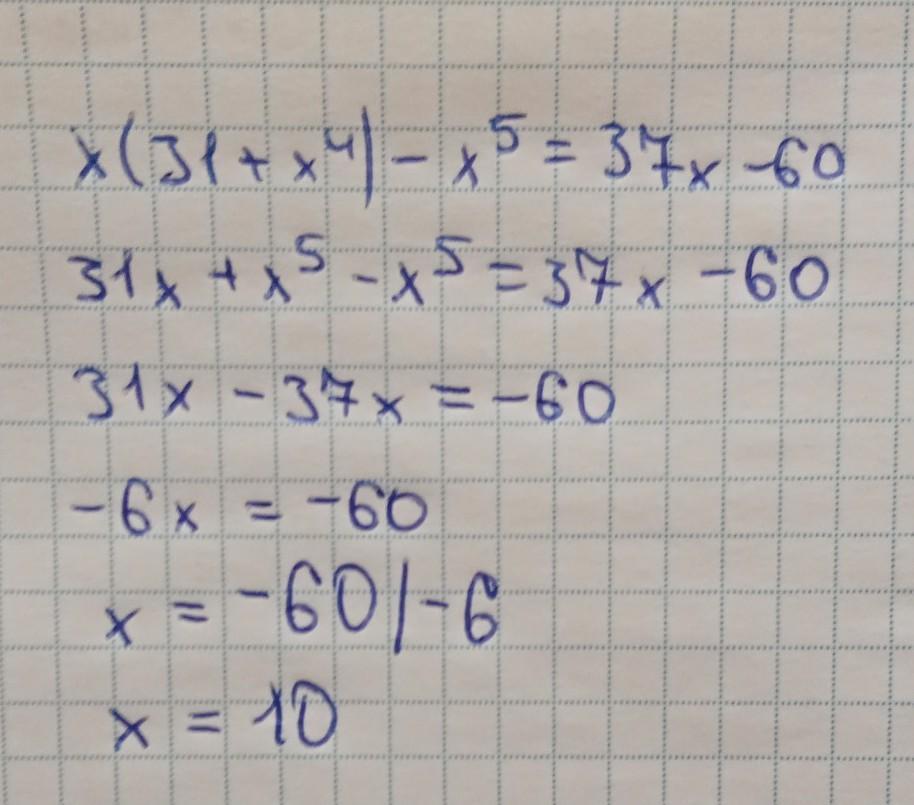 x(31+x⁴)-x⁵=37x-60
31x+x⁵-x⁵=37x-60
31x-37x=-60
-6x=-60
x=-60/-6
x=10